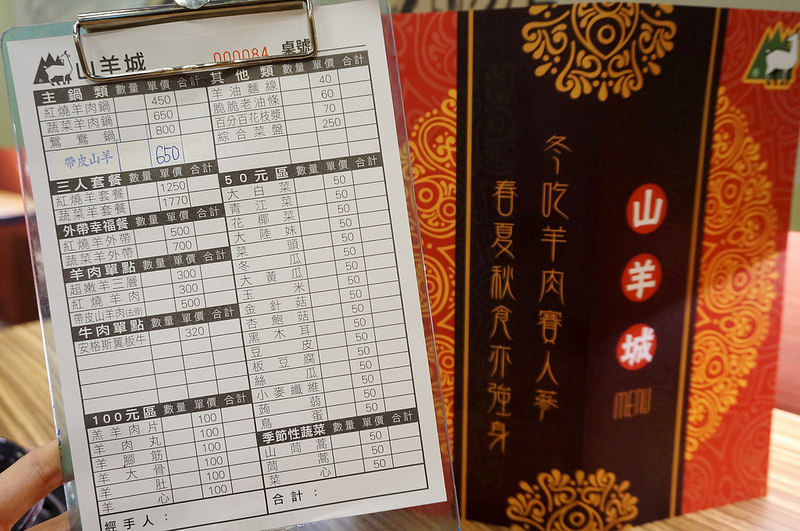 山羊城
000084 桌號
主鍋類 數量 單價 合計
紅燒羊肉鍋 450
蔬菜羊肉鍋 650
鴛鴦鍋 800
帶皮山羊 650
三人套餐 數量 單價 合計
紅燒羊套餐 1250
蔬菜羊套餐 1770
外帶幸福餐 數量 單價 合計
紅燒羊外帶 500
蔬菜羊外帶 700
羊肉單點 數量 單價 合計
超嫩羊三層 300
紅燒羊肉 300
帶皮山羊肉(去骨) 500
牛肉單點 數量 單價 合計
安格斯翼板牛 320
100元區 數量 單價 合計
羔羊肉片 100
羊肉丸 100
羊腳筋 100
羊大骨 100
羊肚 100
羊心 100
經手人：
其他類 數量 單價 合計
羊油麵線 40
脆脆老油條 60
百分百花枝漿 70
綜合菜盤 250
50元區 數量 單價 合計
大白菜 50
青江菜 50
花椰菜 50
大陸妹 50
菜頭 50
冬瓜 50
大黃瓜 50
玉米 50
金針菇 50
杏鮑菇 50
黑木耳 50
豆皮 50
板豆腐 50
絲瓜 50
小麥纖維 50
蒟蒻 50
鳥蛋 50
季節性蔬菜 數量 單價 合計
山茼蒿 50
茼蒿 50
菜心 50
合計：
冬吃羊肉賽人蔘
春夏秋食亦強身
山羊城
MENU